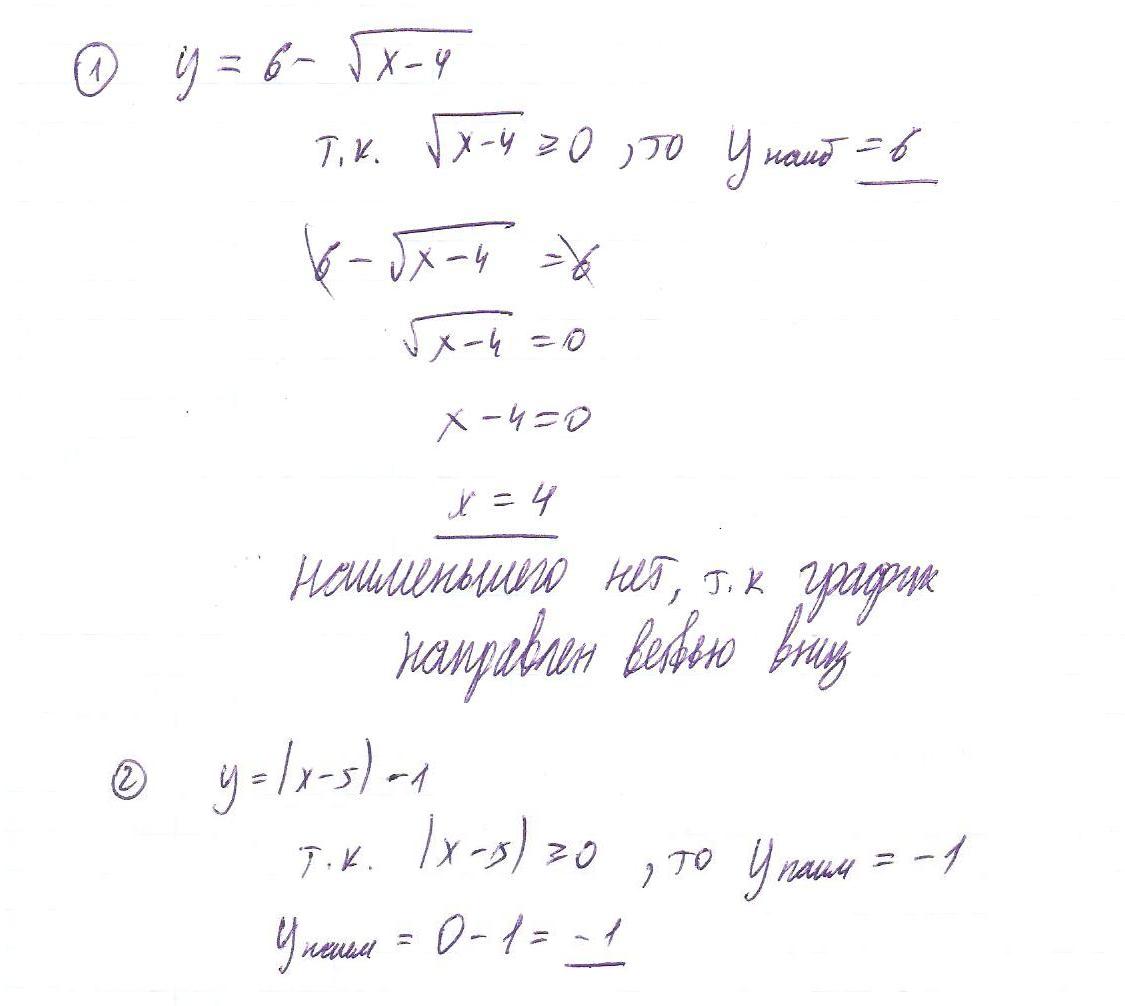 ① y = 6 - √(x-4)
т.к. √(x-4) ≥ 0, то y наиб = 6
6 - √(x-4) = 6
√(x-4) = 0
x - 4 = 0
x = 4
наименьшего нет, т.к график
направлен ветвью вниз
② y = |x-5| - 1
т.к. |x-5| ≥ 0, то y наим = -1
y наим = 0 - 1 = -1